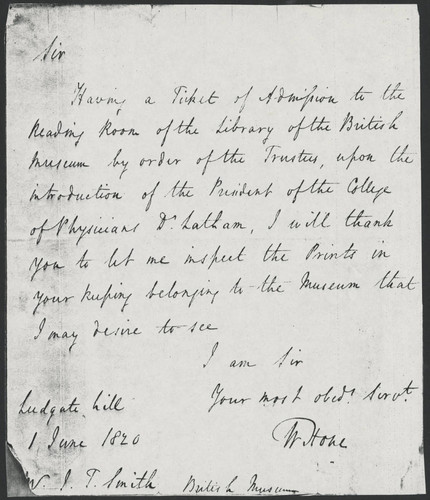 Sir
Having a Ticket of Admission to the
Reading Room of the Library of the British
Museum by order of the Trustees, upon the
introduction of the President of the College
of Physicians Dr. Latham, I will thank
you to let me inspect the Prints in
your keeping belonging to the Museum that
I may desire to see
I am Sir
Your most obedt. Servt.
WHone
Ludgate hill
1 June 1820
J. T. Smith British Museum